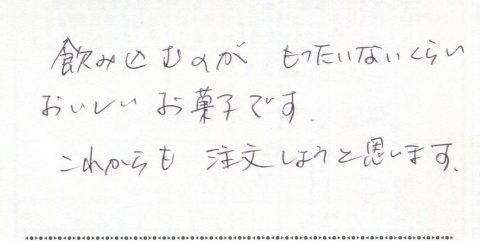 飲み込むのが もったいないくらい
おいしい お菓子です.
これからも 注文しようと思います.